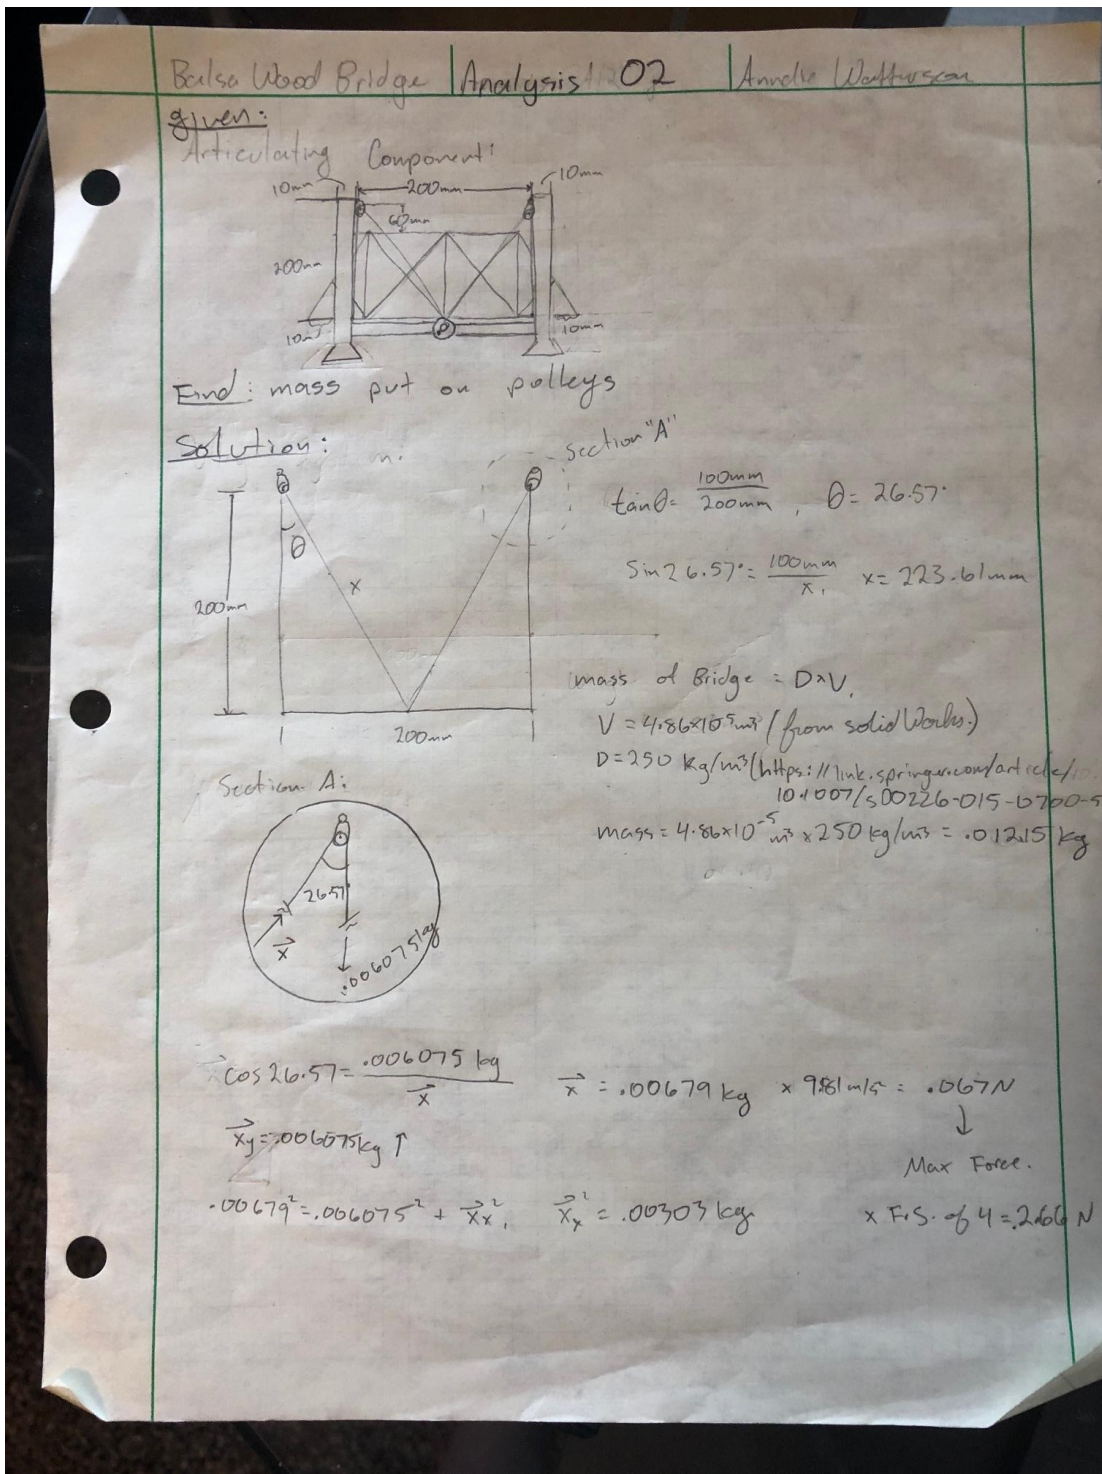 Balsa Wood Bridge | Analysis 02 | Annelie Watterson
given:
Articulating Component:
10mm 200mm 10mm
60mm
200mm
10mm 10mm
Find: mass put on pulleys
Solution:
Section "A"
tanθ= 100mm/200mm, θ= 26.57°
θ
Sin26.57°= 100mm/x, x= 223.61mm
x
200mm
mass of Bridge = D×V,
V = 4.86×10⁻⁵m³ (from solidWorks.)
200mm
D=250 kg/m³(https://link.springer.com/article/10.
10.1007/s00226-015-0700-5
Section A:
mass = 4.86×10⁻⁵ m³ × 250 kg/m³ = .01215 kg
26.57
x⃗
.006075kg
cos 26.57= .006075 kg/x⃗ x⃗ = .00679 kg × 9.81 m/s² = .067N
x⃗y=.006075kg ↑
Max Force.
.00679²=.006075² + x⃗x², x⃗x² = .00303 kg. x F.S. of 4 =.266 N